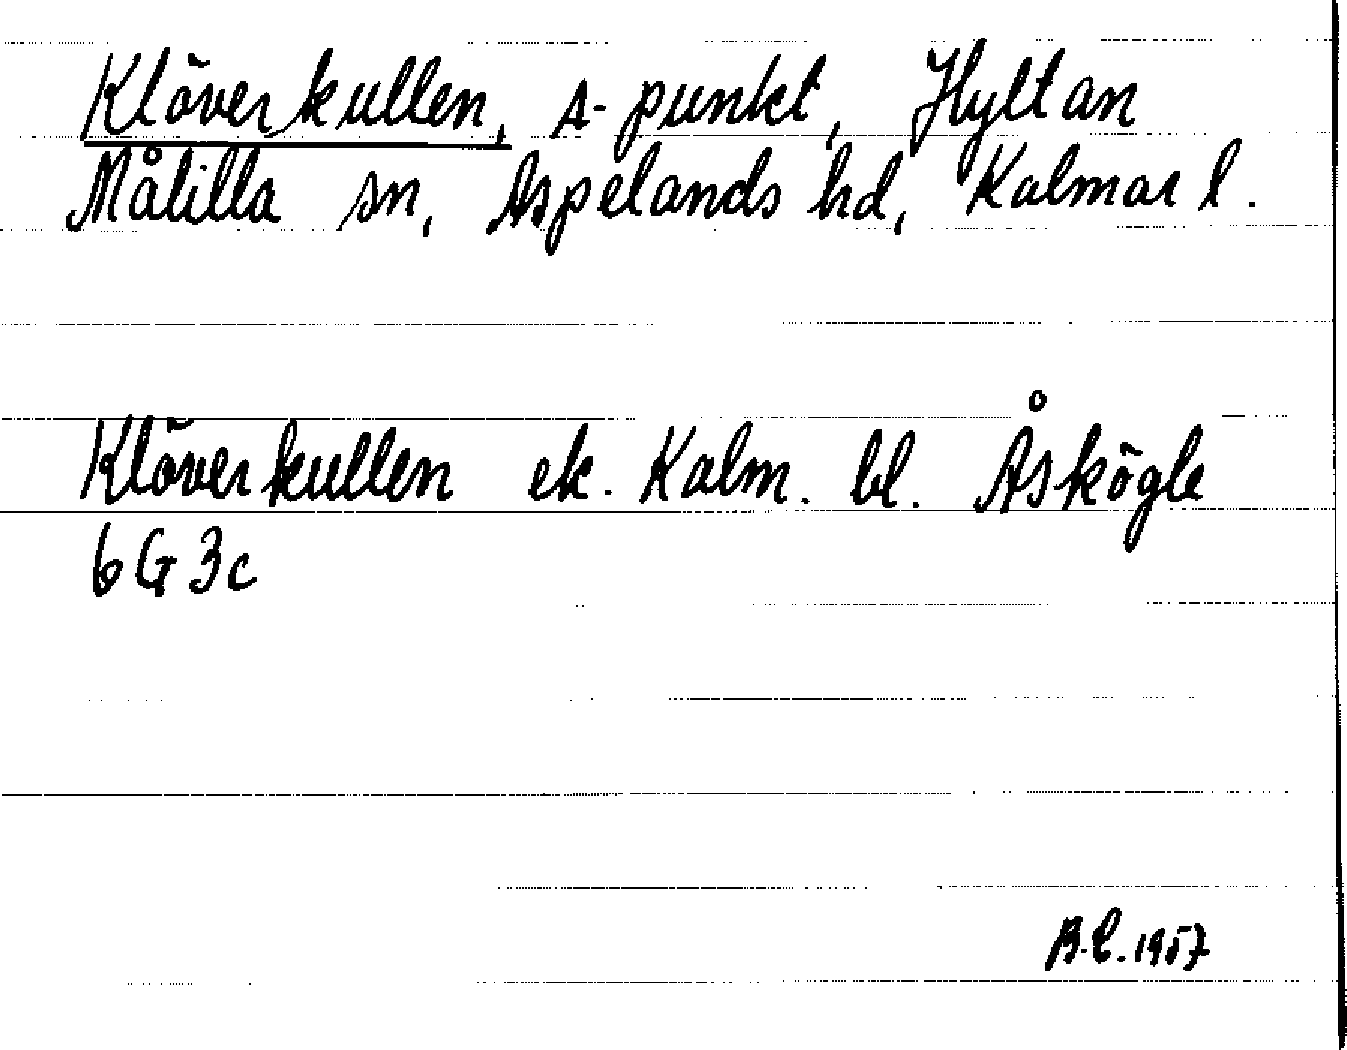 Klöverkullen, A-punkt, Hyltan
Målilla sn, Aspelands hd, Kalmar l.
Klöverkullen ek. Kalm. bl. Åskögle
6G3c
B.L. 1957